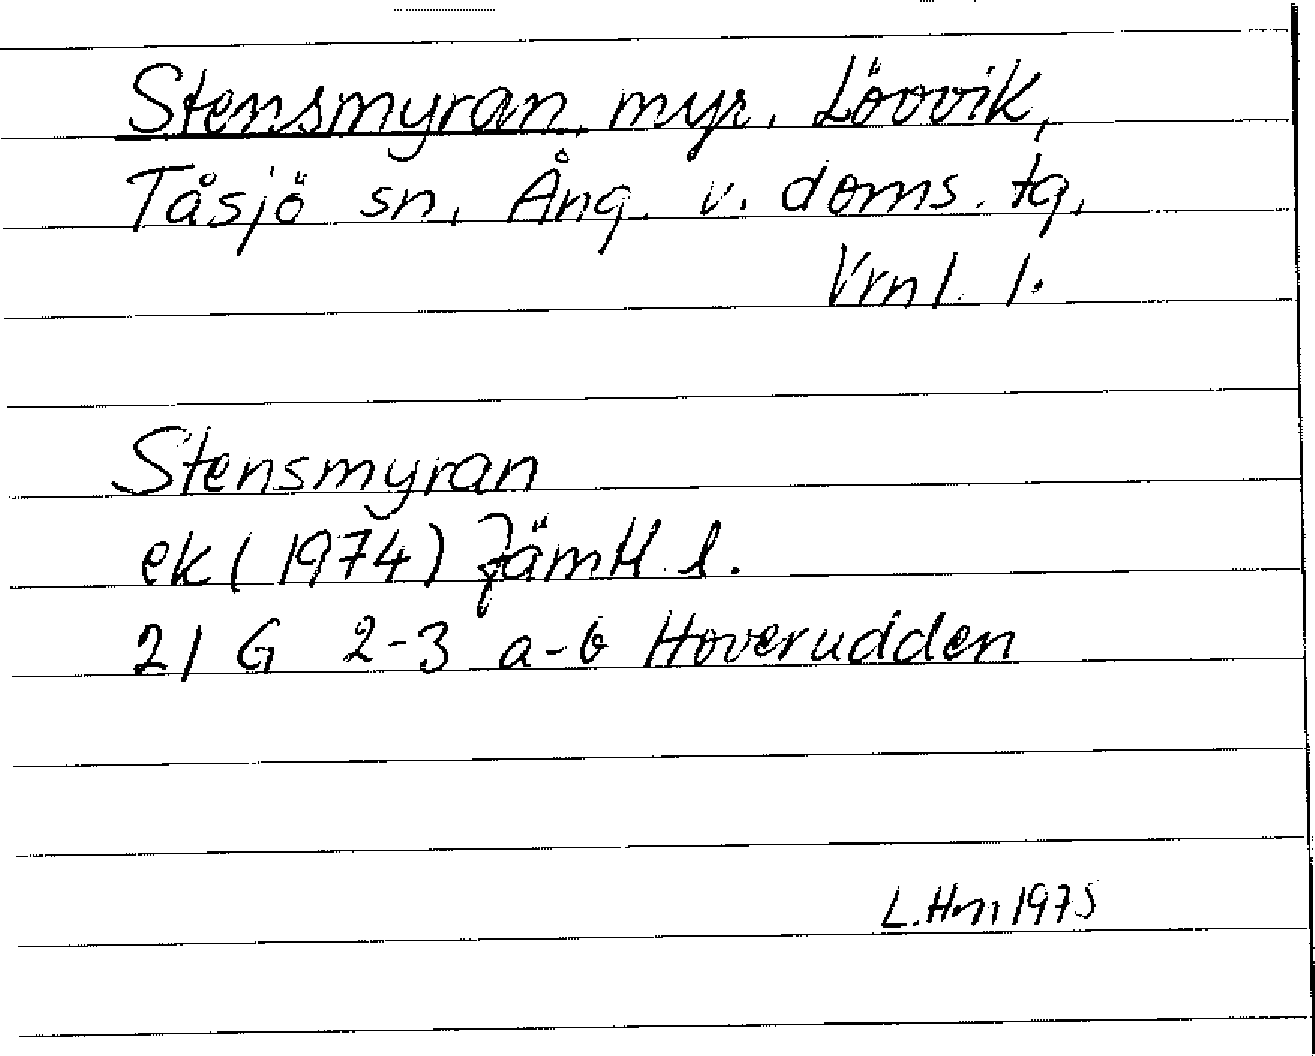 Stensmyran, myr, Lövvik,
Tåsjö sn, Ång. v. doms. tg,
Vrnl. l.
Stensmyran
ek (1974) Jämtl. l.
21 G 2-3 a-b Hoverudden
L. Hm 1975